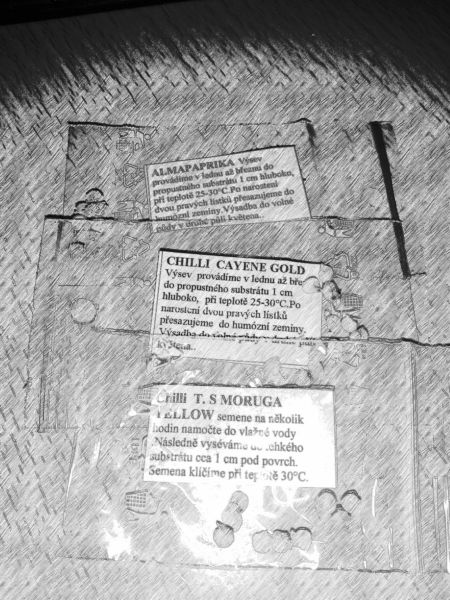 ALMAPAPRIKA Výsev
provádíme v lednu až březnu do
propustného substrátu 1 cm hluboko,
při teplotě 25-30°C.Po narostení
dvou pravých lístků přesazujeme do
humózní zeminy.Výsadba do volné
půdy v druhé půli května.
CHILLI CAYENE GOLD
Výsev provádíme v lednu až bře
do propustného substrátu 1 cm
hluboko, při teplotě 25-30°C.Po
narostení dvou pravých lístků
přesazujeme do humózní zeminy.
Výsadba do volné půdy v druhé půli
května..
Chilli T. S MORUGA
YELLOW semene na několik
hodin namočte do vlažné vody
.Následně vyséváme do lehkého
substrátu cca 1 cm pod povrch.
Semena klíčíme při teplotě 30°C.